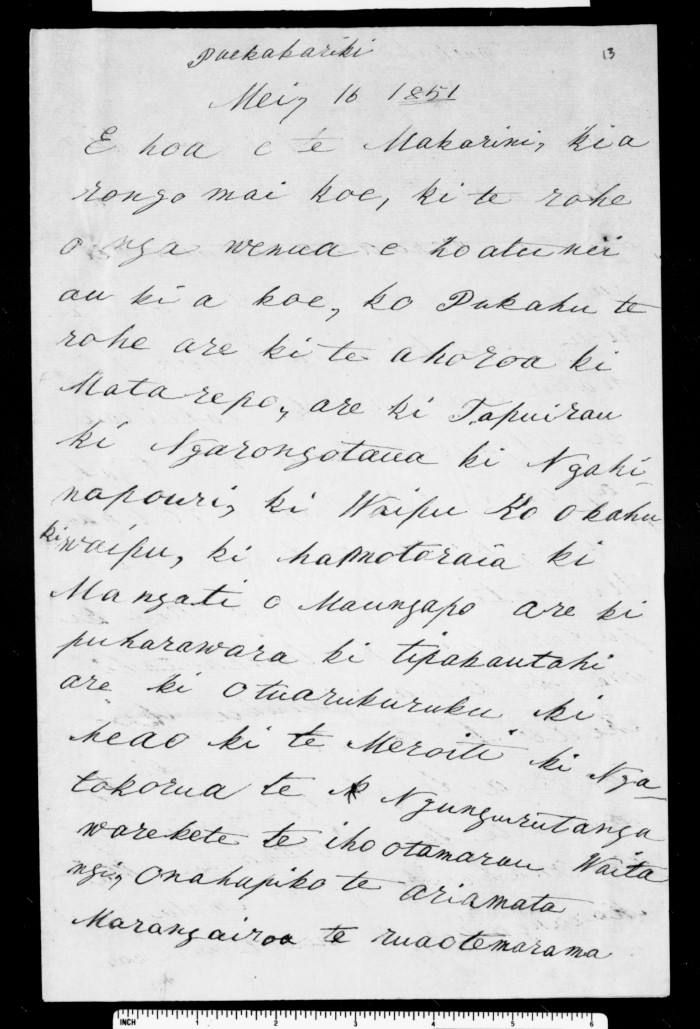 Paekakariki
13
Mei, 16 1851
E hoa e te Makarini, kia
rongo mai koe, ki te rohe
o nga wenua e hoatu nei
au ki a koe, ko Pukahu te
rohe are ki te ahoroa ki
Matarepe, are ki Tapuirau
ki Ngarongotaua ki Ngahi-
napouri, ki Waipu Ko okahu
ki waipu, ki hamotoraia ki
Mangati o Maungapo are ki
puharawara ki tipakautahi
are ki otuarukuruku, ki
heao ki te Meroiti ki Nga-
tokorua te Ngungurutanga
warekete te ihootamarau Waita
ngi, Onahapiko te ariamata
Marangairoa te ruaotemarama
INCH 1 2 3 4 5 6